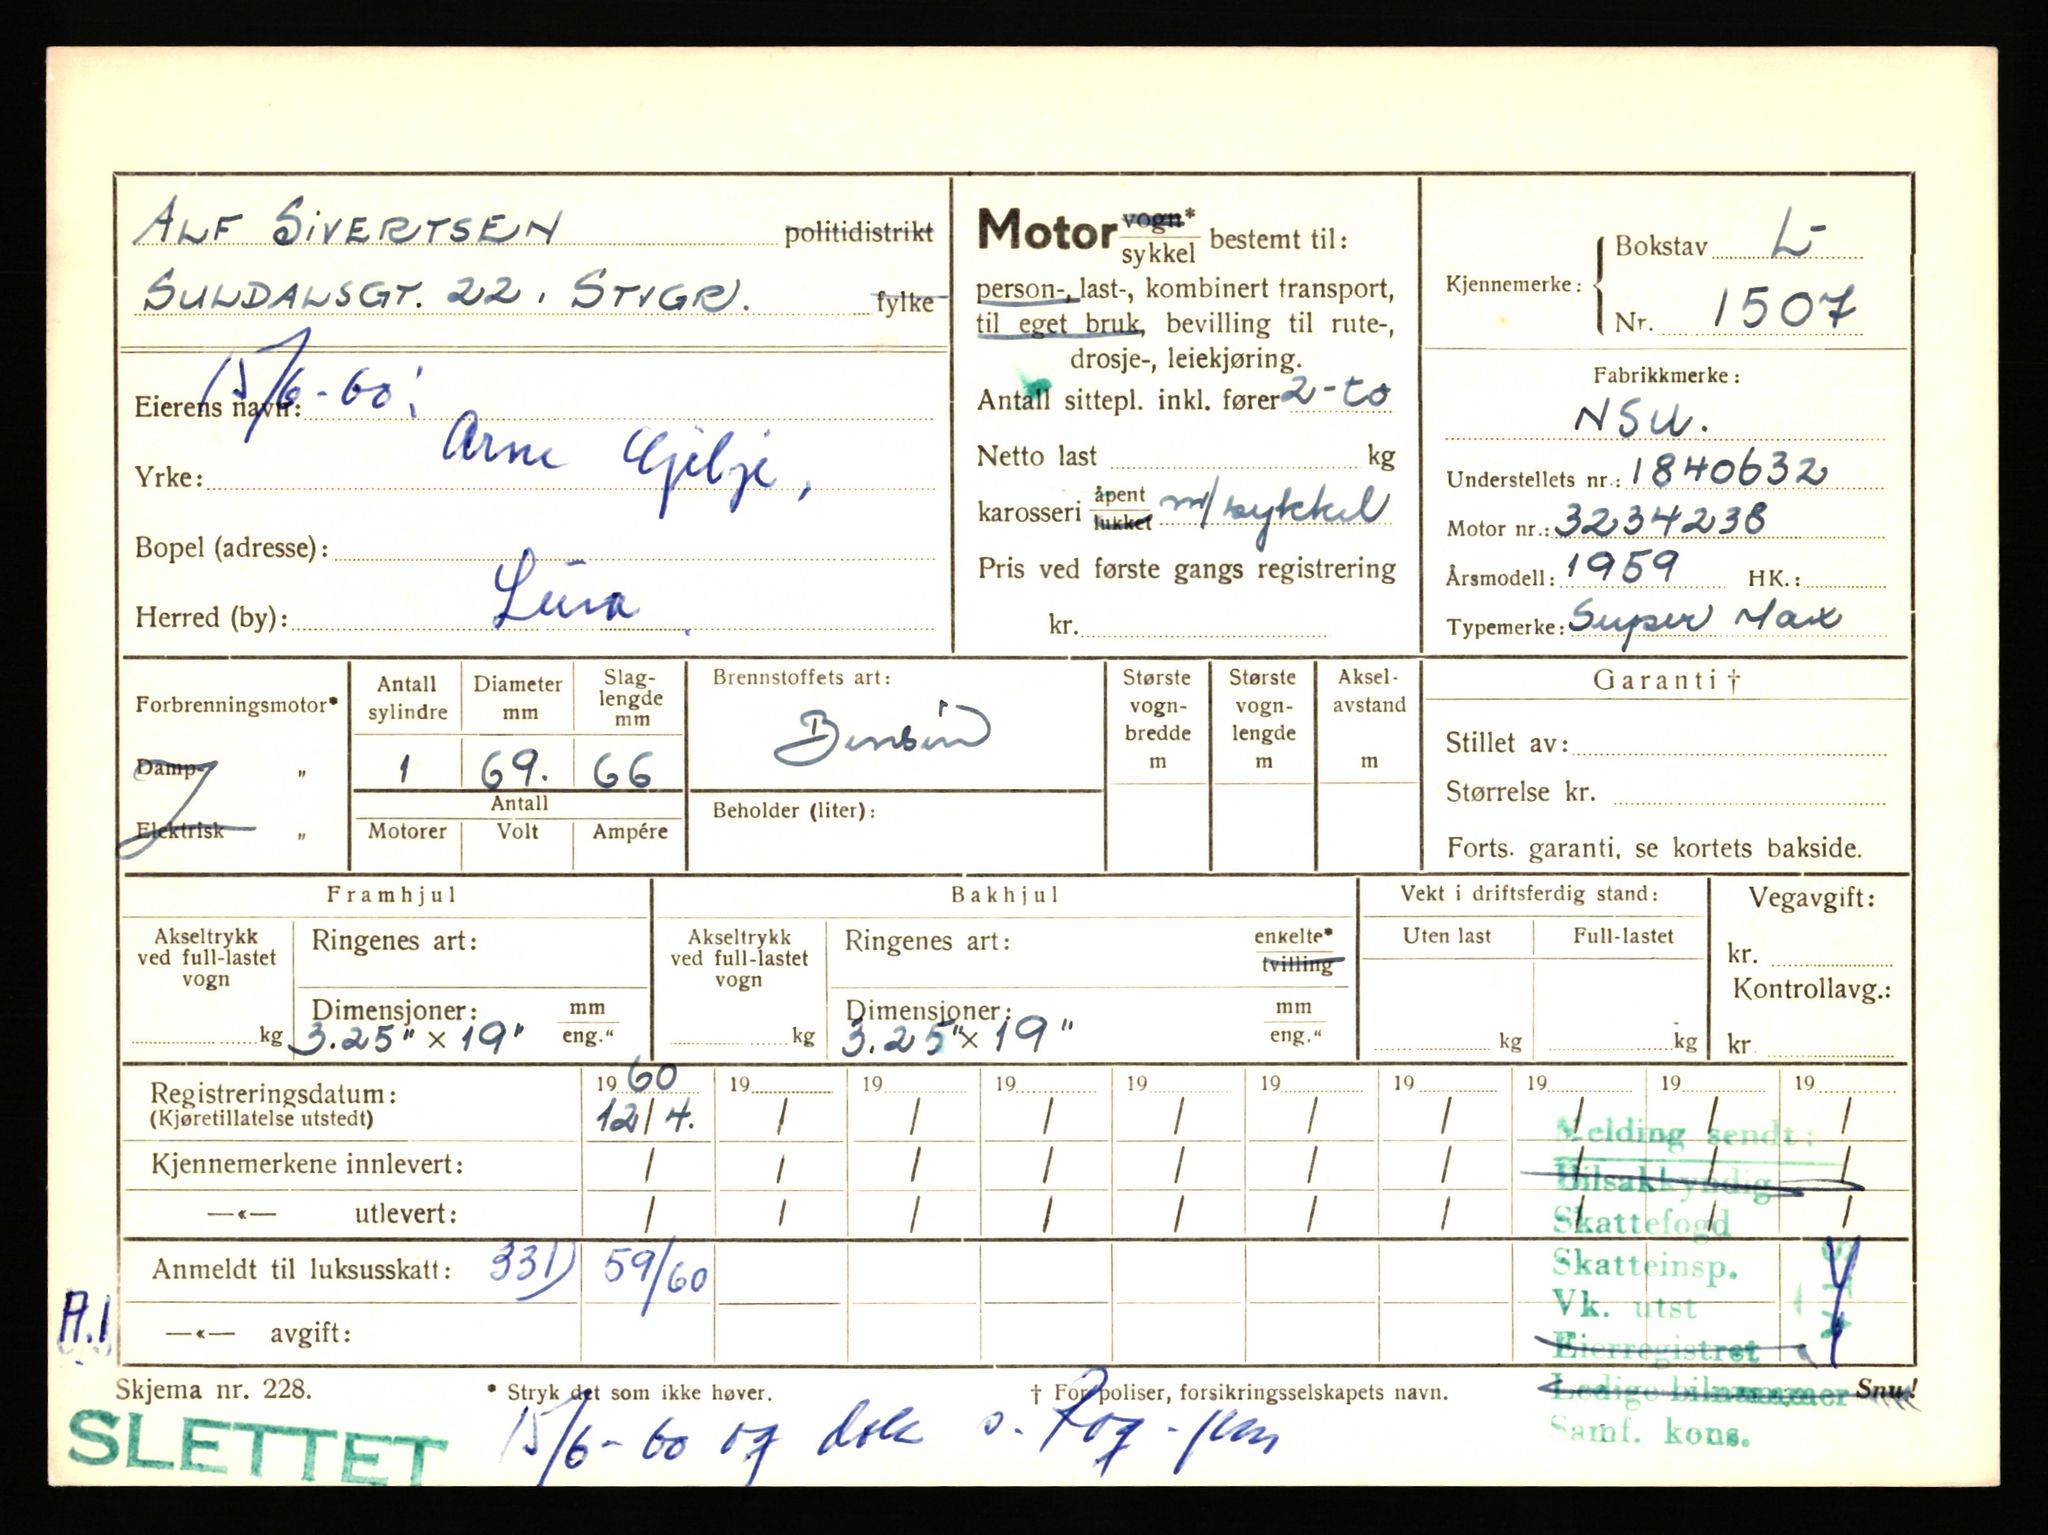 ALF SIVERTSEN politidistrikt
SULDALSGT. 22, STVGR. fylke
15/6-60:
Eierens navn:
Arne Gjilje,
Yrke:
Bopel (adresse):
Herred (by): Lura
Motor vogn* / sykkel bestemt til:
person-, last-, kombinert transport,
til eget bruk, bevilling til rute-,
drosje-, leiekjøring.
Antall sittepl. inkl. fører 2-to
Netto last kg
karosseri åpent / lukket m/sykkel
Pris ved første gangs registrering
kr.
Kjennemerke: Bokstav L-
Nr. 1507
Fabrikkmerke:
NSU.
Understellets nr.: 1840632
Motor nr.: 3234238
Årsmodell: 1959 HK.:
Typemerke: Super Max
Forbrenningsmotor*
Damp- „
Elektrisk „
Antall sylindre
Diameter mm
Slag-lengde mm
1 69. 66
Antall
Motorer Volt Ampére
Brennstoffets art:
Bensin
Beholder (liter):
Største vogn-bredde m
Største vogn-lengde m
Aksel-avstand m
Garanti †
Stillet av:
Størrelse kr.
Forts. garanti, se kortets bakside.
Framhjul
Akseltrykk ved full-lastet vogn
kg
Ringenes art:
Dimensjoner: mm / eng.“
3.25" × 19"
Bakhjul
Akseltrykk ved full-lastet vogn
kg
Ringenes art: enkelte* / tvilling
Dimensjoner: mm / eng.“
3.25" × 19"
Vekt i driftsferdig stand:
Uten last Full-lastet
kg kg
Vegavgift:
kr.
Kontrollavg.:
kr.
Registreringsdatum: 1960 19 19 19 19 19 19 19 19 19
(Kjøretillatelse utstedt) 12/4. / / / / / / / / /
Kjennemerkene innlevert: / / / / / / / / / /
—«— utlevert: / / / / / / / / / /
Anmeldt til luksusskatt: 331) 59/60
—«— avgift:
A.1
Melding sendt:
Bilsakkyndig
Skattefogd
Skatteinsp.
Vk. utst
Eierregistret
Ledige bilnummer
Samf. kons.
Skjema nr. 228. * Stryk det som ikke høver. † For poliser, forsikringsselskapets navn. Snu!
SLETTET
15/6-60 og dok s. Rog-